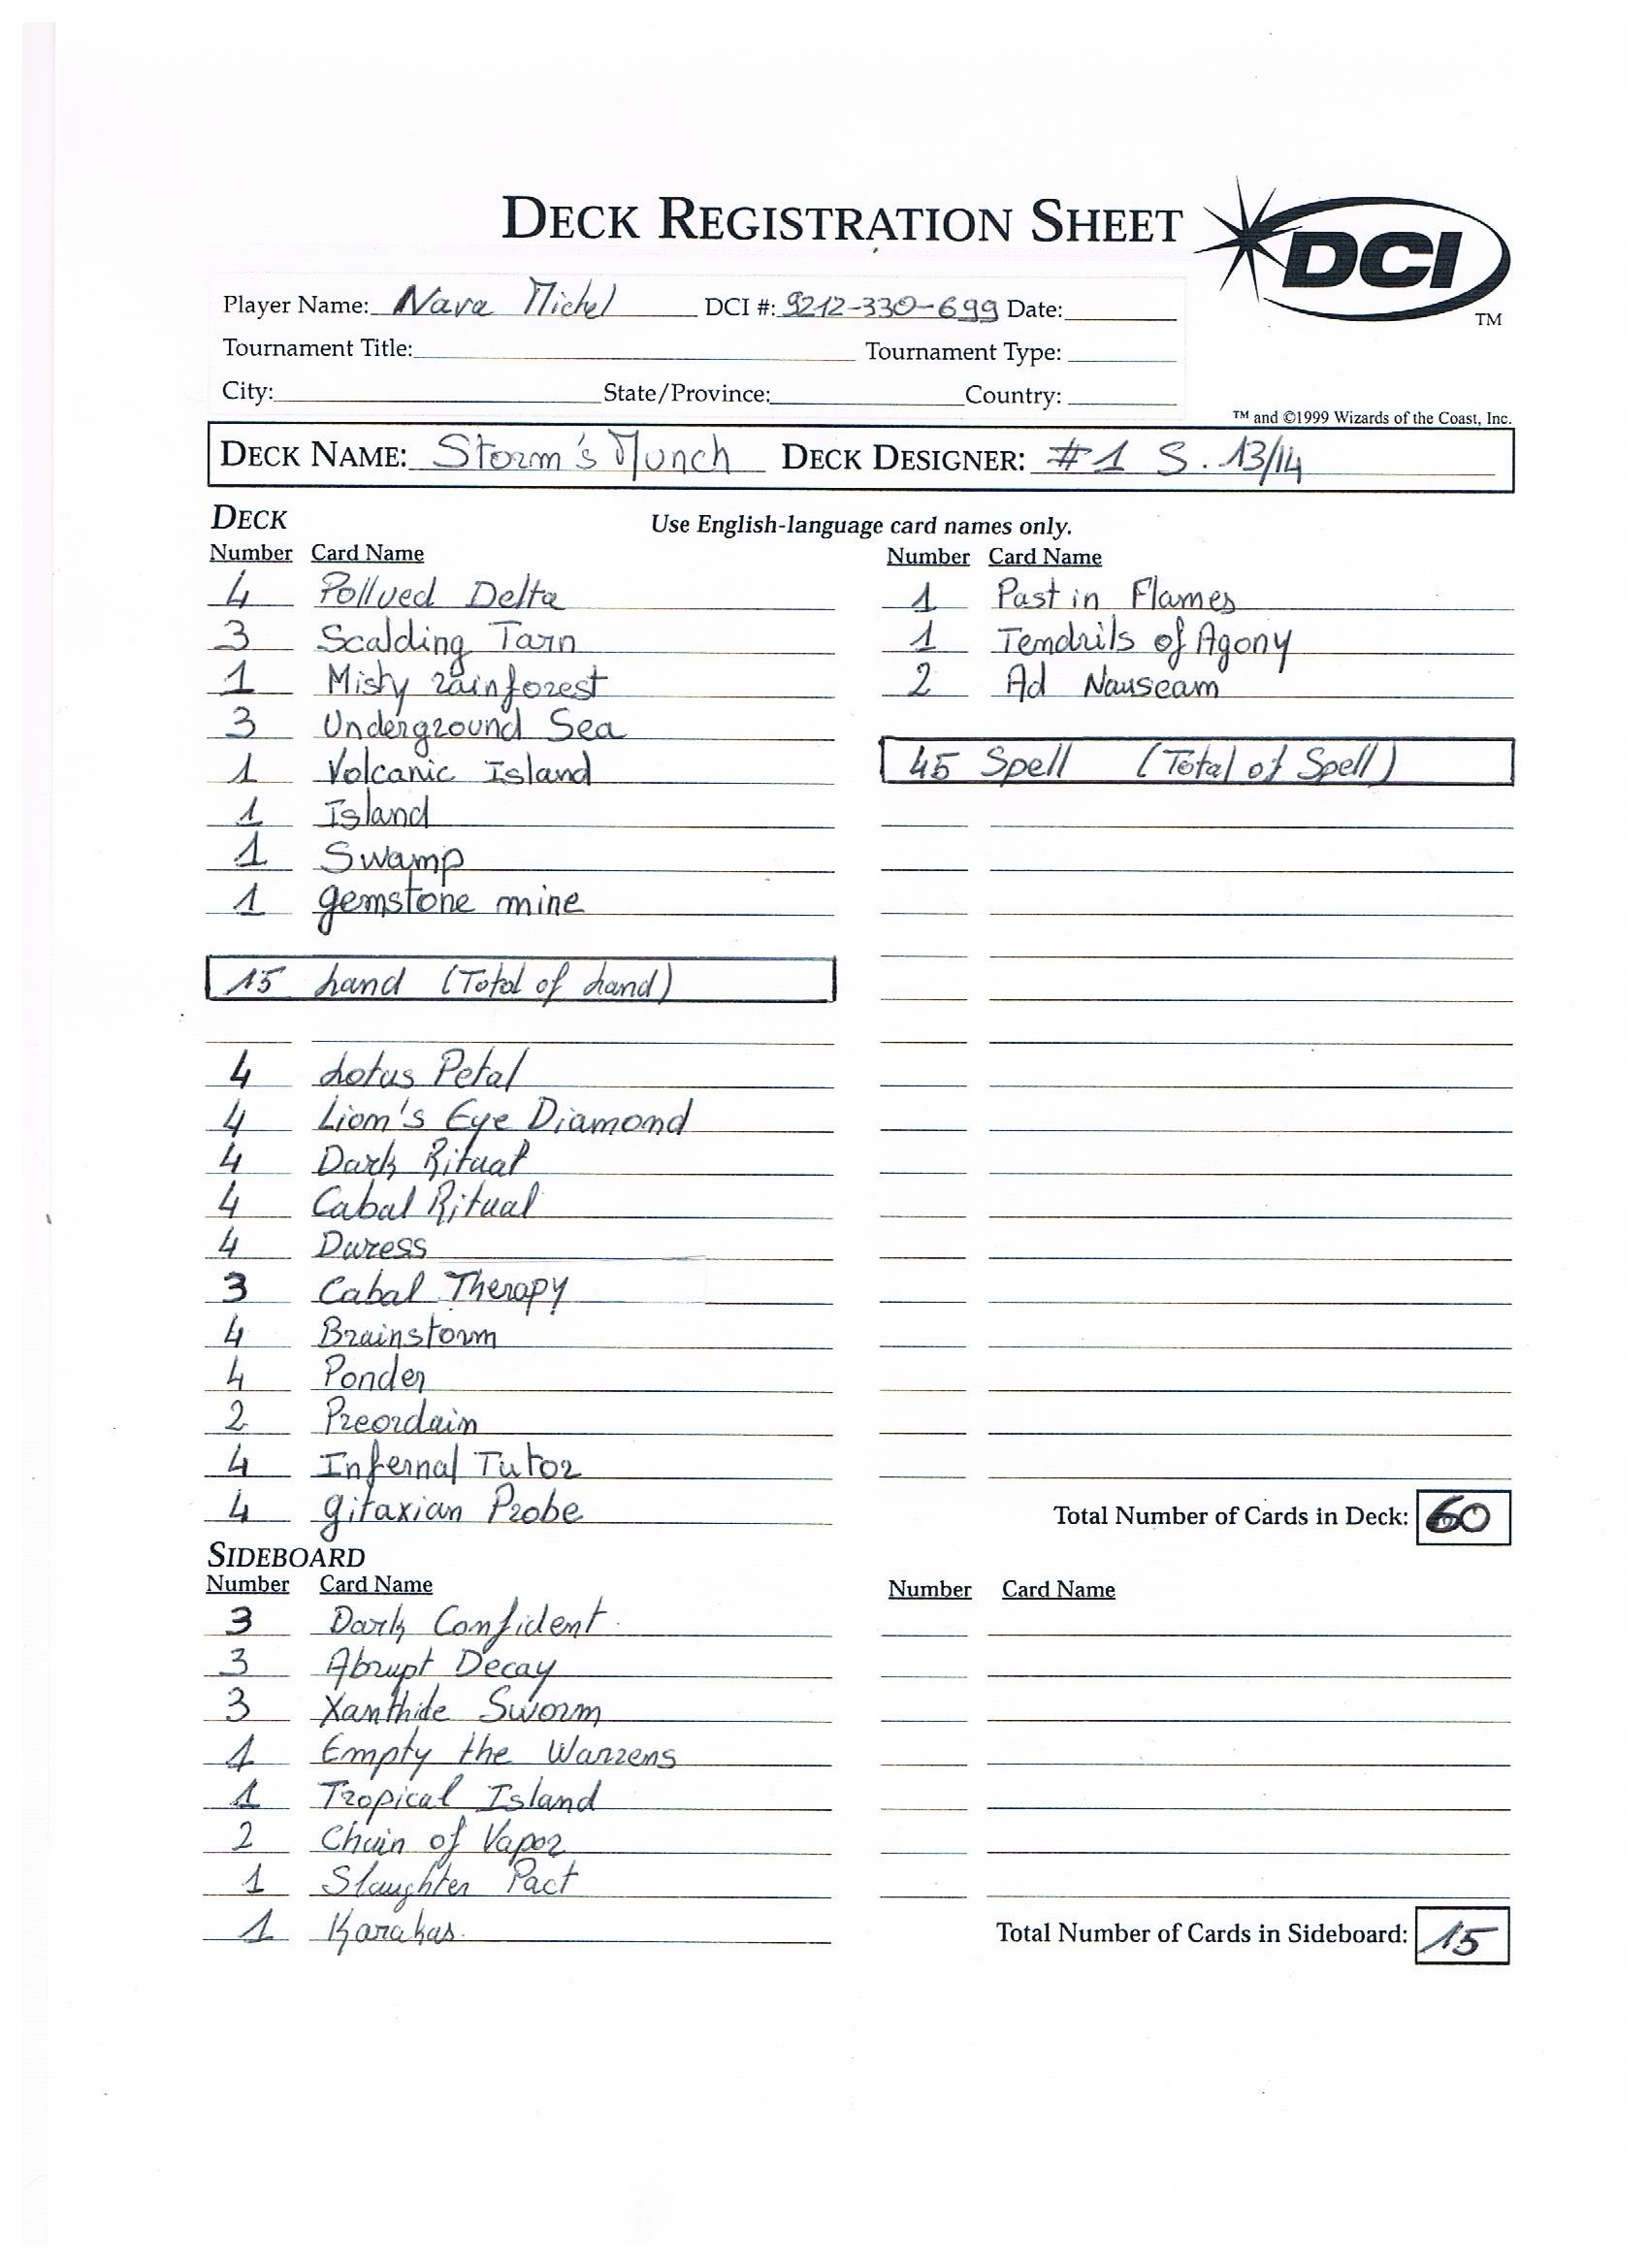 DECK REGISTRATION SHEET
DCI
TM
Player Name: Nava Michel DCI #: 9212-330-699 Date:
Tournament Title: Tournament Type:
City: State/Province: Country:
™ and ©1999 Wizards of the Coast, Inc.
DECK NAME: Storm's Munch DECK DESIGNER: #1 S. 13/14
DECK
Use English-language card names only.
Number Card Name
4 Pollued Delta
3 Scalding Tarn
1 Misty rainforest
3 Underground Sea
1 Volcanic Island
1 Island
1 Swamp
1 gemstone mine
15 Land (Total of Land)
4 Lotus Petal
4 Lion's Eye Diamond
4 Dark Ritual
4 Cabal Ritual
4 Duress
3 Cabal Therapy
4 Brainstorm
4 Ponder
2 Preordain
4 Infernal Tutor
4 gitaxian Probe
Number Card Name
1 Past in Flames
1 Tendrils of Agony
2 Ad Nauseam
45 Spell (Total of Spell)
Total Number of Cards in Deck: 60
SIDEBOARD
Number Card Name
3 Dark Confident
3 Abrupt Decay
3 Xanthide Sworm
1 Empty the Warrens
1 Tropical Island
2 Chain of Vapor
1 Slaughter Pact
1 Karakas
Number Card Name
Total Number of Cards in Sideboard: 15